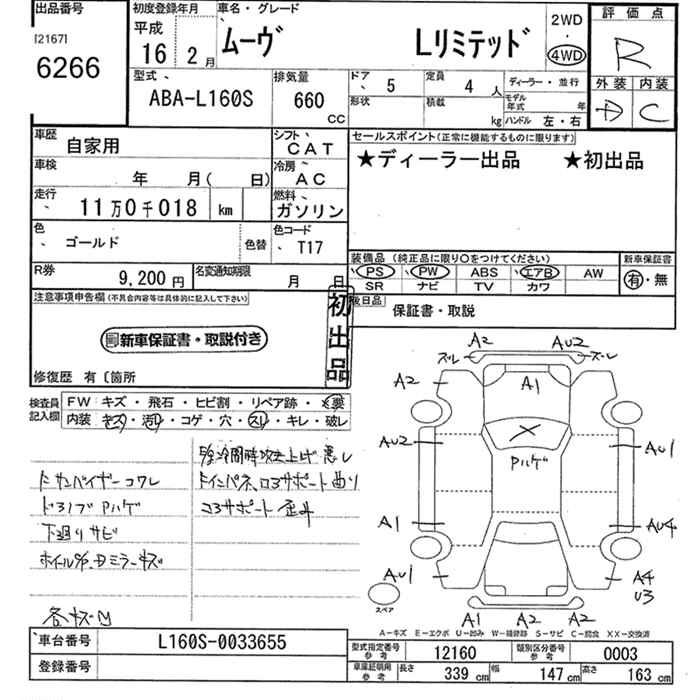 出品番号
[2167]
6266
初度登録年月
平成
16 2月
車名・グレード
ムーヴ Lリミテッド
2WD
・
4WD
評価点
R
外装 内装
D C
型式
ABA-L160S
排気量
660
CC
ドア 5
定員 4 人
形状
積載 kg
ディーラー・並行
モデル年式 年
ハンドル 左・右
車歴 自家用
シフト CAT
車検 年 月( 日)
冷房 AC
走行 11万0千018 km
燃料 ガソリン
色 ゴールド
色替
色コード T17
R券 9,200円
名変通知期限 月 日
セールスポイント(正常に機能するものに限ります)
★ディーラー出品 ★初出品
装備品(純正品に限り○をつけてください)
PS PW ABS エアB AW
SR ナビ TV カワ
新車保証書
有・無
後日品
保証書・取説
注意事項申告欄(不具合内容等は具体的に記入して下さい)
新車保証書・取説付き
初出品
修復歴 有〔箇所
検査員記入欄
FW キズ・飛石・ヒビ割・リペア跡・X要
内装 キズ・汚れ・コゲ・穴・スレ・キレ・破レ
サンバイザーコワレ
ドアノブ Pハゲ
下廻りサビ
各キズ凹
A2 AU2
ズレ ズレ
A2 A1
AU2 Pハゲ AU1
A1 AU4
AU1 A4
U3
スペア
A1 A2 A2
A-キズ E-エクボ U-凹み W-補修跡 S-サビ C-腐食 XX-交換済
車台番号 L160S-0033655
登録番号
型式指定番号 参考 12160
類別区分番号 参考 0003
車庫証明用 参考 長さ 339 cm 幅 147 cm 高さ 163 cm